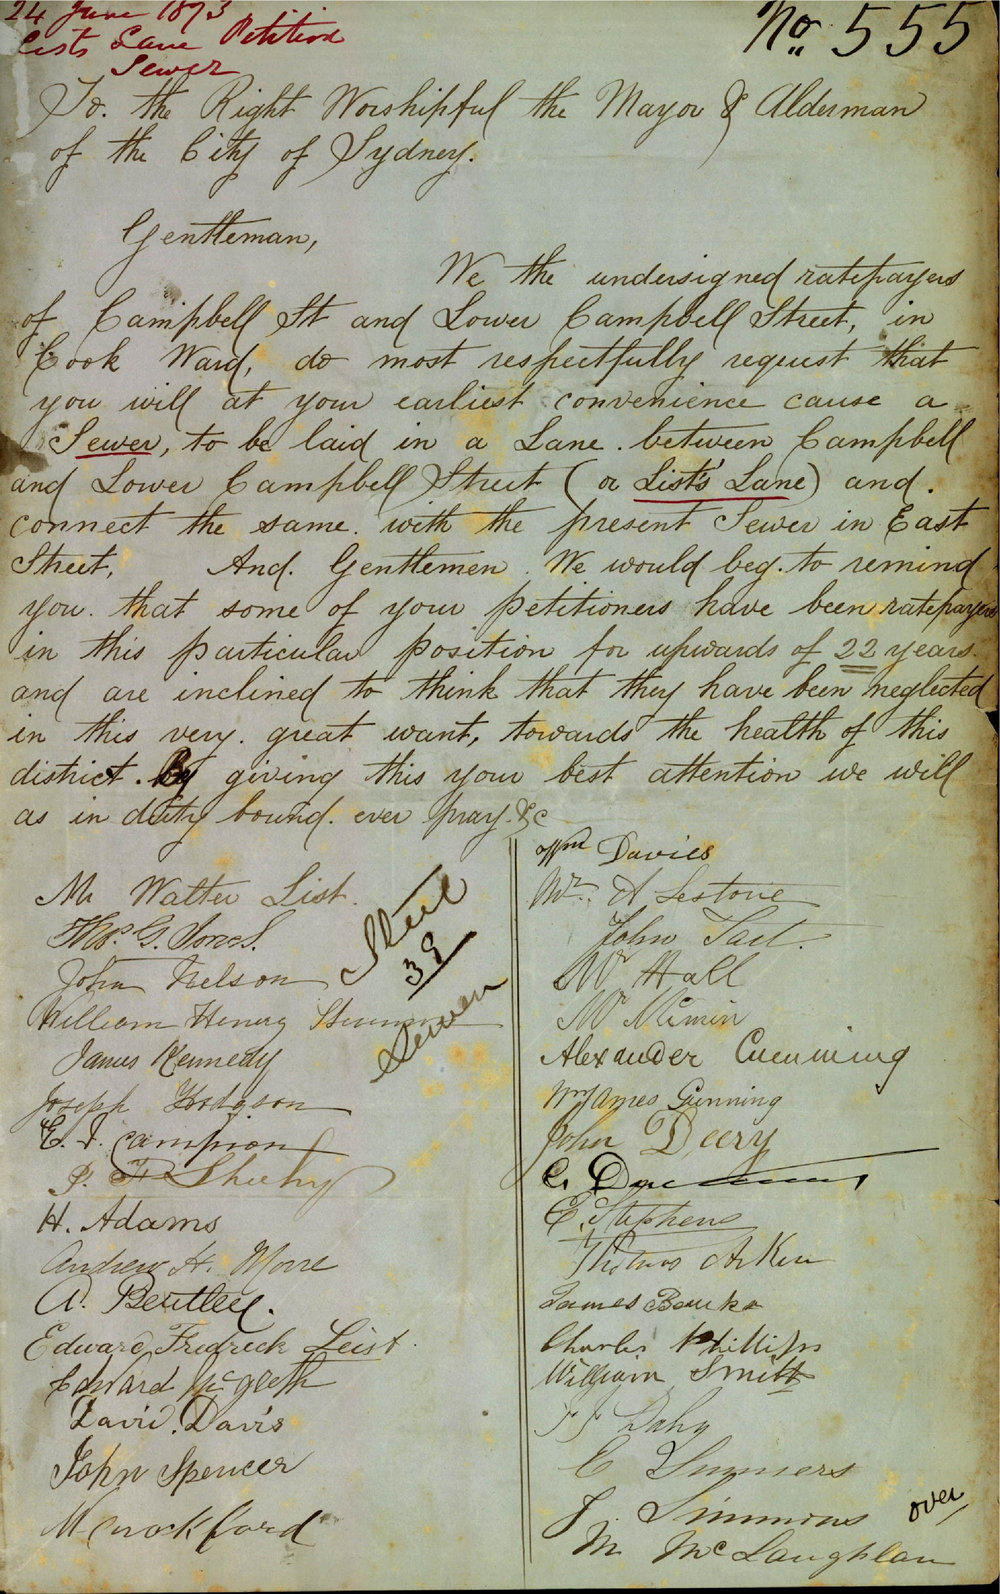 24 June 1873
Lists Lane Petition
Sewer
No. 555
To. the Right Worshipful the Mayor & Alderman
of the City of Sydney.
Gentleman,
We the undersigned ratepayers
of Campbell St and Lower Campbell Street, in
Cook Ward, do most respectfully request that
you will at your earliest convenience cause a
Sewer, to be laid in a Lane. between Campbell
and Lower Campbell Street (or List's Lane) and.
connect the same. with the present Sewer in East
Street, And. Gentlemen. We would beg. to remind
you. that some of your petitioners have been ratepayers
in this particular position for upwards of 22 years
and are inclined to think that they have been neglected
in this very. great want, towards the health of this
district. By giving this your best attention we will
as in duty bound. ever pray. &c
Mr Walter List.
Thos. G. Jones.
John Nelson
William Henry
James Kennedy
Joseph Hodgson
E. J. Campion
P. F. Sheehy
H. Adams
Andrew H. Moore
A. Bentley.
Edward Fredrick Leist.
Edward Mc
David. Davis
John Spencer
M Crockford
39
Sewer
Wm Davies
Mr. A
John Tait.
Mr Hall
Mr
Alexander Cumming
Mr James Gunning
John Deery
C.
E. Stephens
Thomas Aitken
James Bourke
Charles Phillips
William Smith
Daly
E Summers
J. Simmons
M McLaughlan
over